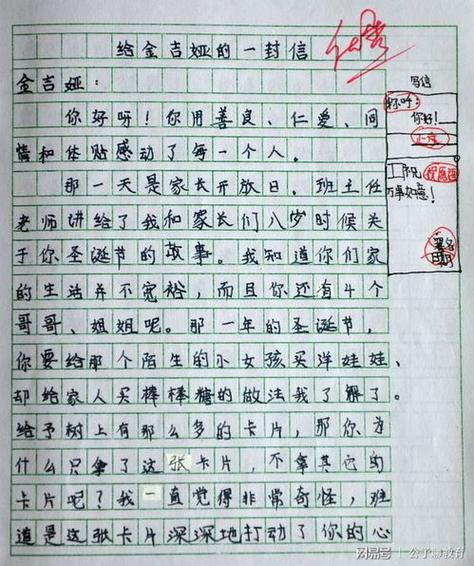 给金吉娅的一封信
金吉娅：
你好呀！你用善良、仁爱、同
情和体贴感动了每一个人。
那一天是家长开放日，班主任
老师讲给了我和家长们八岁时候关
于你圣诞节的故事。我知道你们家
的生活并不宽裕，而且你还有4个
哥哥、姐姐呢。那一年的圣诞节，
你要给那个陌生的小女孩买洋娃娃、
却给家人买棒棒糖的做法我了解了。
给予树上有那么多的卡片，那你为
什么只拿了这张卡片，不拿其它的
卡片呢？我一直觉得非常奇怪，难
道是这张卡片深深地打动了你的心
写信
称呼：
你好！
正文
祝愿语
万事如意！
署名
日期
网易号 | 公子夜教育